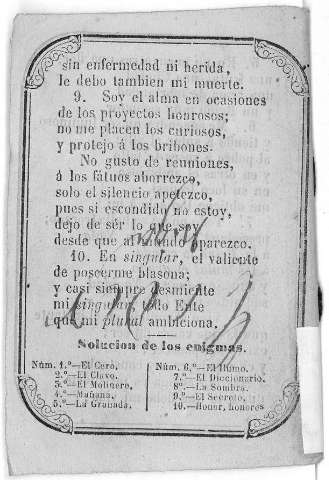 sin enfermedad ni herida,
le debo tambien mi muerte.
9. Soy el alma en ocasiones
de los proyectos honrosos;
no me placen los curiosos,
y protejo á los bribones.
No gusto de reuniones,
á los fátuos aborrezco,
solo el silencio apetezco,
pues si escondido no estoy,
dejo de sér lo que soy
desde que al mundo aparezco.
10. En singular, el valiente
de poseerme blasona;
y casi siempre desmiente
mi singular todo Ente
que mi plural ambiciona.
Solucion de los enigmas.
Núm. 1.º—El Cero.
2.º—El Clavo.
3.º—El Molinero.
4.º—Mañana.
5.º—La Granada.
Núm. 6.º—El Humo.
7.º—El Diccionario.
8.º—La Sombra.
9.º—El Secreto.
10.—Honor, honores